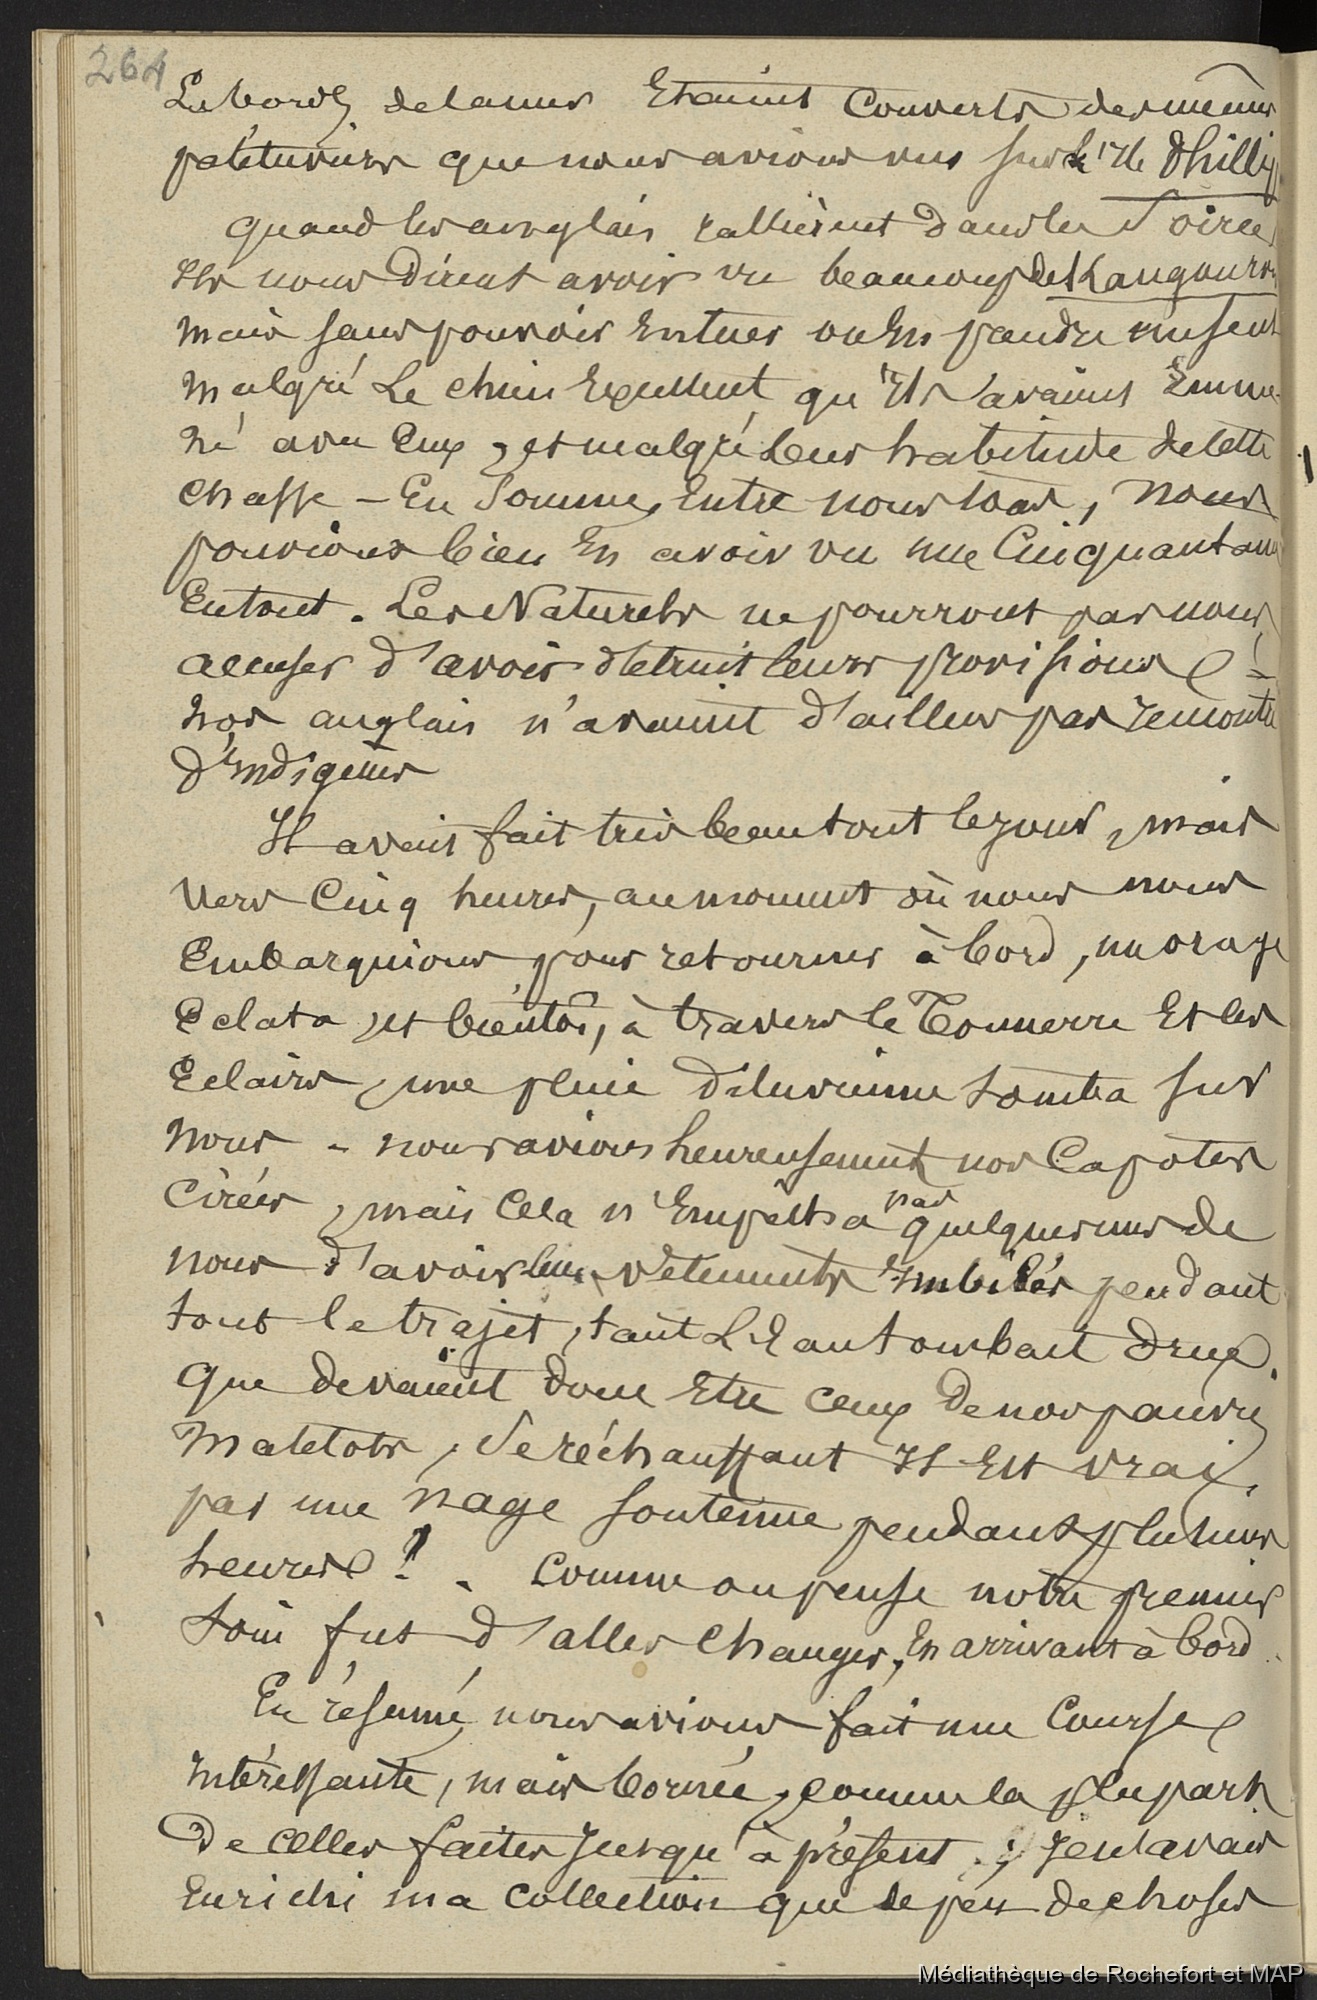 264
Les bords de la mer Etaient Couverts des mêmes
palétuviers que nous avions vus sur l'Ile Phillip
Quand les anglais rallièrent dans la Soirée
Ils nous dirent avoir vu beaucoup de Kangourous
mais sans pouvoir En tuer ou En prendre un seul
malgré Le chien Excellent qu'Ils avaient Emme-
né avec Eux, et malgré Leur habitude de cette
chasse - En Somme, Entre nous tous, Nous
pouvions bien En avoir vu une Cinquantaine
En tout. Les Naturels ne pourront pas nous
accuser d'avoir détruit leurs provisions
nos anglais n'avaient d'ailleurs pas rencontré
d'Indigènes
Il avait fait très beau tout le jour, mais
vers Cinq heures, au moment où nous nous
Embarquions pour retourner à bord, un orage
Eclata, et bientôt, à travers le Tonnerre Et les
Eclairs, une pluie diluvienne tomba sur
nous - nous avions heureusement nos Capotes
Cirées, mais Cela n'Empêcha pas quelques uns de
nous d'avoir leurs vêtements Imbibés pendant
tout le trajet, tant L'Eau tombait drue.
Que devaient donc Etre ceux de nos pauvres
Matelots, Se réchauffant Il Est vrai,
par une nage soutenue pendant plusieurs
heures ! . Comme on pense notre premier
soin fut d'aller Changer, En arrivant à bord
En résumé, nous avions fait une Course
Intéressante, mais bornée, comme la plupart
de celles faites Jusqu'à présent ; Je n'avais
Enrichi ma Collection que de peu de choses
Médiathèque de Rochefort et MAP